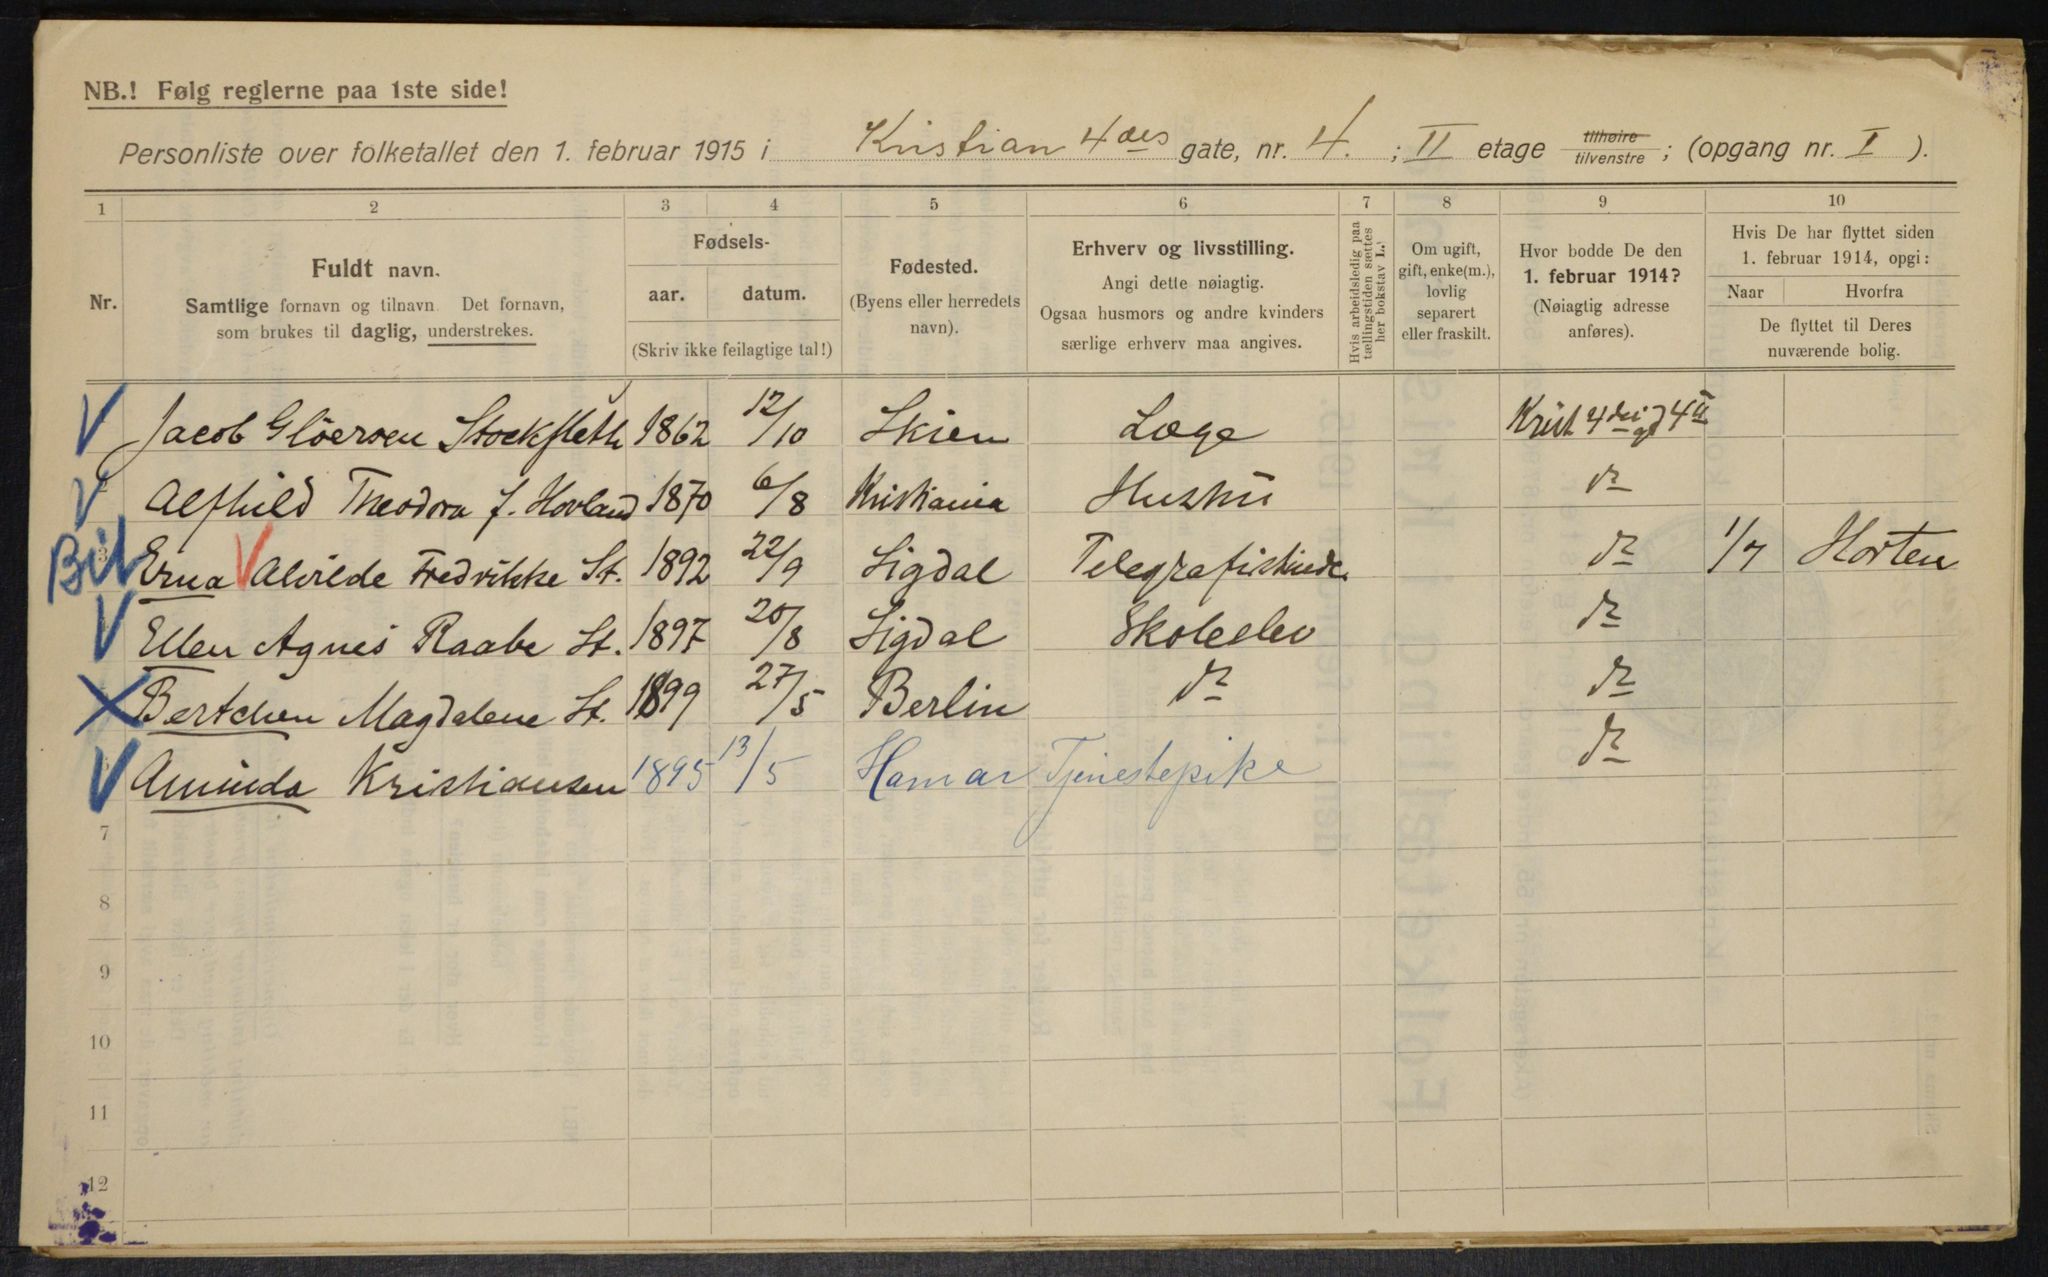 NB.! Følg reglerne paa 1ste side!
Personliste over folketallet den 1. februar 1915 i Kristian 4des gate, nr. 4. ; II etage tilhøire tilvenstre ; (opgang nr. I ).
1 2 3 4 5 6 7 8 9 10
Nr.
Fuldt navn.
Samtlige fornavn og tilnavn Det fornavn,
som brukes til daglig, understrekes.
Fødsels-
aar. datum.
(Skriv ikke feilagtige tal!)
Fødested.
(Byens eller herredets
navn).
Erhverv og livsstilling.
Angi dette nøiagtig.
Ogsaa husmors og andre kvinders
særlige erhverv maa angives.
Hvis arbeidsledig paa
tællingstiden sættes
her bokstav L.
Om ugift,
gift, enke(m.),
lovlig
separert
eller fraskilt.
Hvor bodde De den
1. februar 1914?
(Nøiagtig adresse
anføres).
Hvis De har flyttet siden
1. februar 1914, opgi:
Naar Hvorfra
De flyttet til Deres
nuværende bolig.
Jacob Gløersen Stockfleth 1862 12/10 Skien Læge Krist 4des gt 4 II
Alfhild Theodora f. Hovland 1870 6/8 Kristiania Husmor do
Erna Alvilde Fredrikke St. 1892 22/9 Sigdal Telegrafistinde do 1/7 Horten
Ellen Agnes Raabe St. 1897 20/8 Sigdal Skoleelev do
Bertchen Magdalene St. 1899 27/5 Berlin do do
Aminda Kristiansen 1895 13/5 Hamar Tjenestepike do
7
8
9
10
11
12